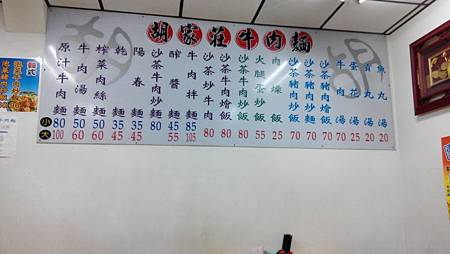 胡家莊牛肉麵
胡
胡
小
大
原汁牛肉麵 80 100
牛肉湯麵 50 60
榨菜肉絲麵 50 60
乾麵 35 45
陽春麵 35 45
沙茶牛肉炒麵 80
酢醬麵 45 55
牛肉拌麵 85 105
沙茶炒牛肉 80
沙茶牛肉燴飯 80
沙茶牛肉炒飯 80
火腿蛋炒飯 55
肉燥飯 25
沙茶豬肉炒麵 70
沙茶豬肉炒飯 70
沙茶豬肉燴飯 70
牛肉湯 70
蛋花湯 25
貢丸湯 25
單丸湯 20
韓式